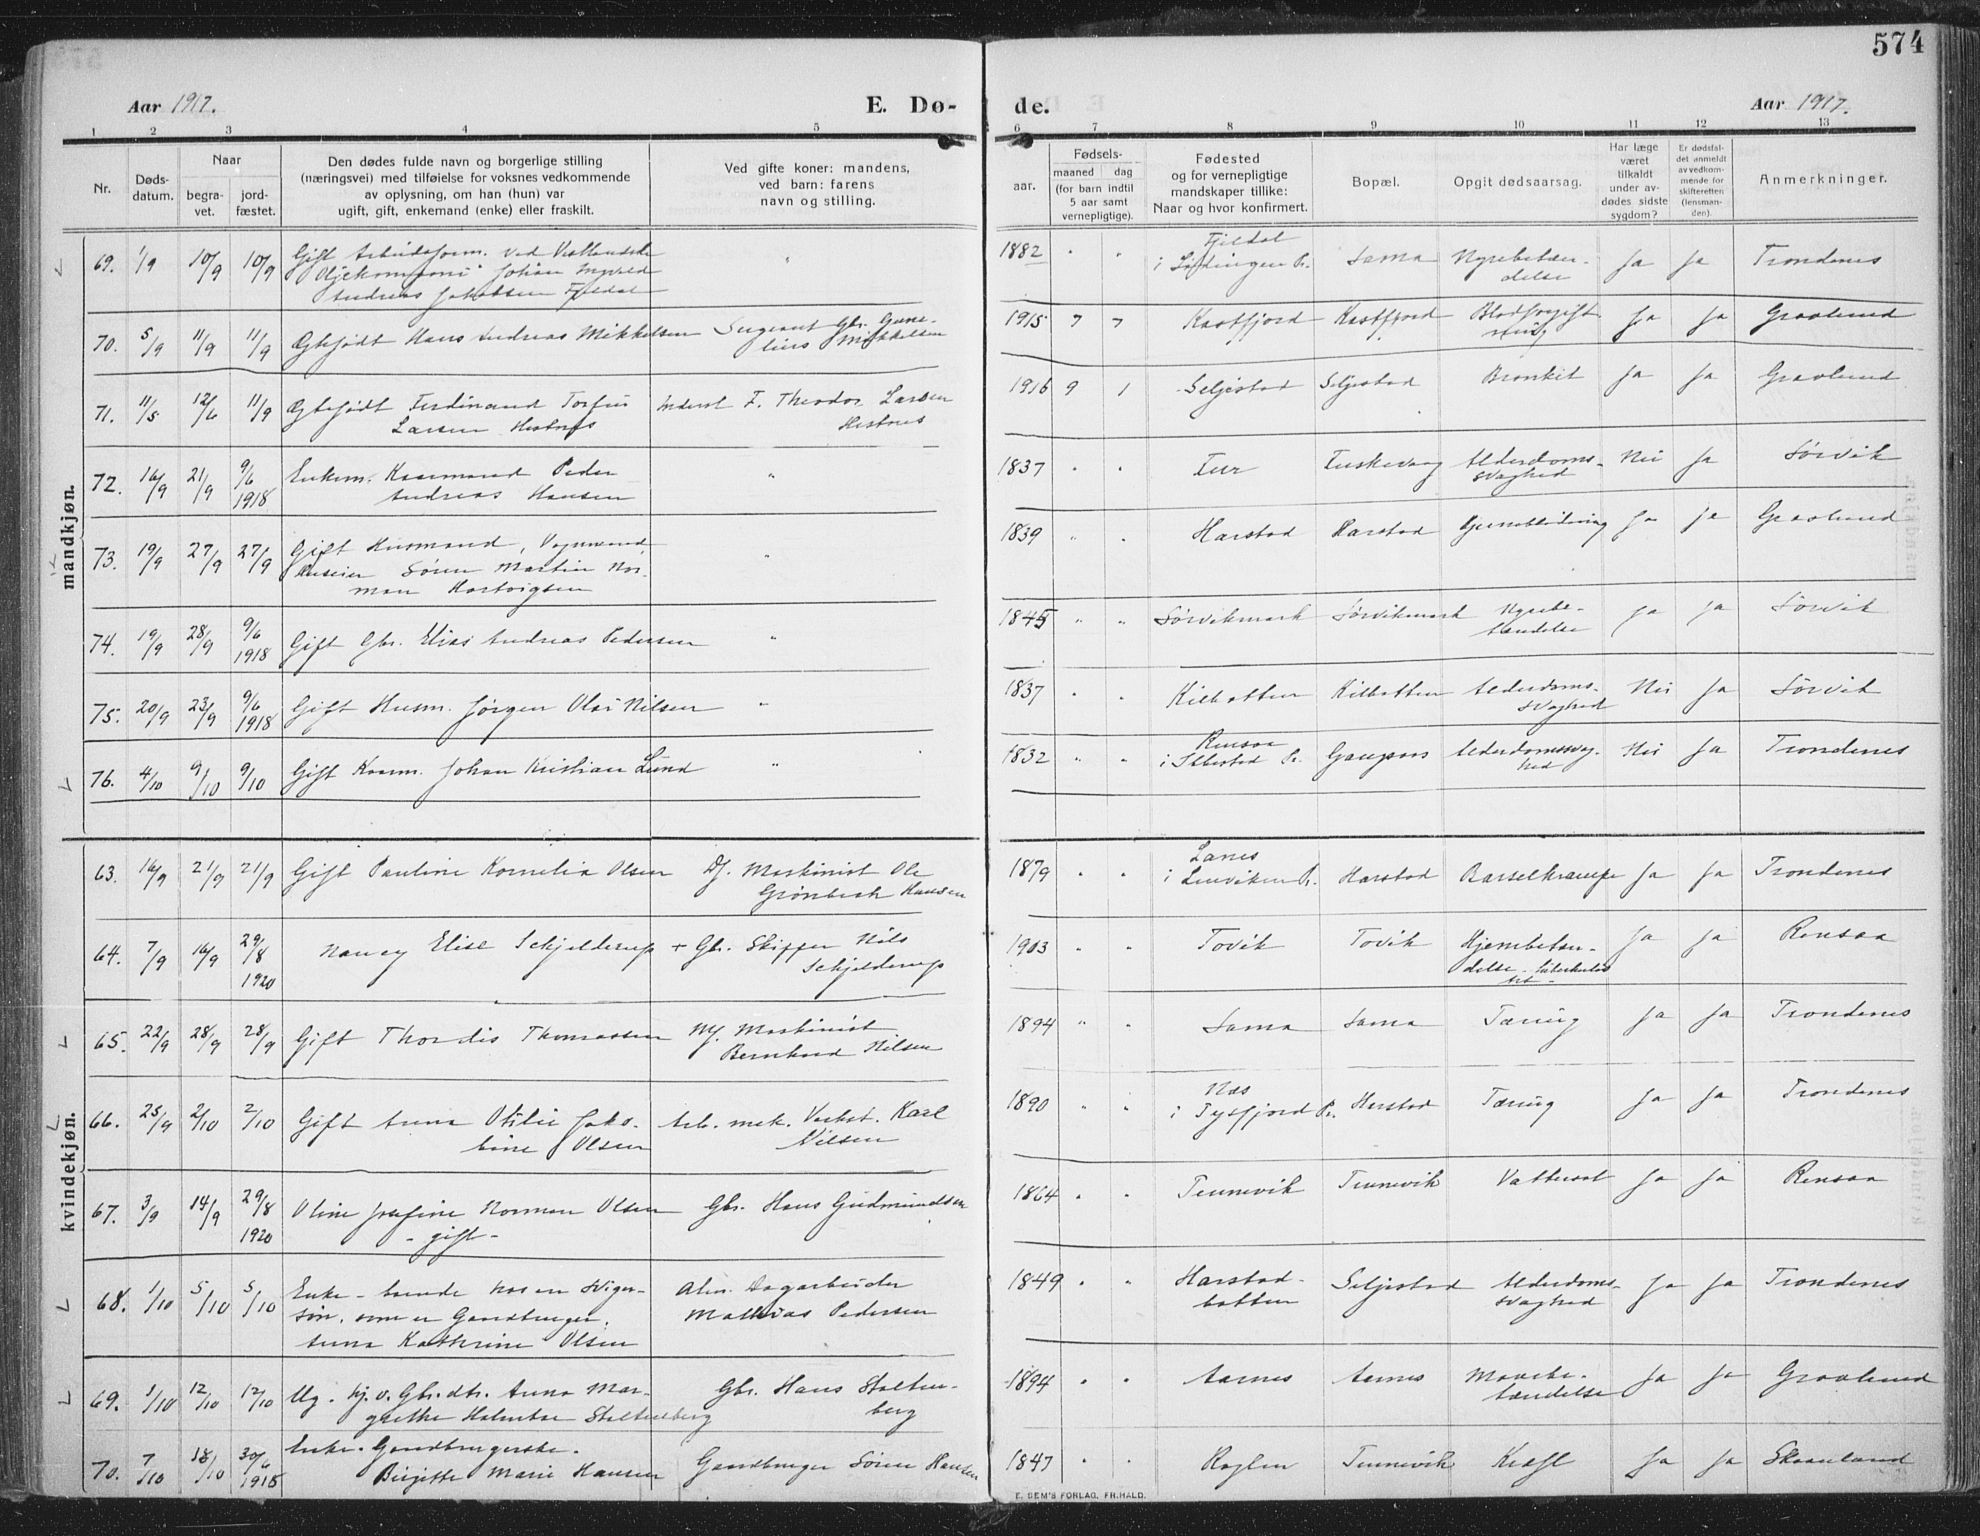 574
Aar 1917.
E. Dø-
de.
Aar 1917.
1 2 3 4 5 6 7 8 9 10 11 12 13
Nr.
Døds-
datum.
Naar
begra-
vet.
jord-
fæstet.
Den dødes fulde navn og borgerlige stilling
(næringsvei) med tilføielse for voksnes vedkommende
av oplysning, om han (hun) var
ugift, gift, enkemand (enke) eller fraskilt.
Ved gifte koner: mandens,
ved barn: farens
navn og stilling.
Fødsels-
aar.
maaned dag
(for barn indtil
5 aar samt
vernepligtige).
Fødested
og for vernepligtige
mandskaper tillike:
Naar og hvor konfirmert.
Bopæl.
Opgit dødsaarsag.
Har læge
været
tilkaldt
under av-
dødes sidste
sygdom?
Er dødsfal-
det anmeldt
av vedkom-
mende for
skifteretten
(lensman-
den).
Anmerkninger.
mandkjøn.
69. 1/9 10/9 10/9 Gift Arbeidsform. ved Vestlandske
Oljekompani Johan Ingvald
Andreas Jakobsen Fjeldal
" 1882 " " Fjeldal
i Lødingen Pr. Sama Nyrebetæn-
delse Ja Ja Trondenes
70. 5/9 11/9 11/9 Gbfødt Hans Andreas Mikkelsen Sergeant Gbr. Gune-
lius Mikkelsen
1915 7 7 Kastfjord Kastfjord Blodforgift-
ning Ja Ja Gravlund
71. 11/5 12/6 11/9 Gbfødt Ferdinand Torfin
Larsen Hestnes
Inderst F. Theodor Larsen
Hestnes
1916 9 1 Seljestad Seljestad Bronkit Ja Ja Gravlund
72. 16/9 21/9 9/6
1918 Enkem. Kaarmand Peder
Andreas Hansen
" 1837 " " Fur Fuskevaag Alderdoms-
svaghed Nei Ja Sørvik
73. 19/9 27/9 27/9 Gift Husmand, Vognmand,
Huseier Søren Martin Nor-
man Hartvigsen
" 1839 " " Harstad Harstad Hjerneblødning Ja Ja Gravlund
74. 19/9 28/9 9/6
1918 Gift Gbr. Elias Andreas Pedersen
" 1845 " " Sørvikmark Sørvikmark Nyrebe-
tændelse Ja Ja Sørvik
75. 20/9 23/9 9/6
1918 Gift Husm. Jørgen Olai Nilsen
" 1837 " " Kilbotten Kilbotten Alderdoms-
svaghed Nei Ja Sørvik
76. 4/10 9/10 9/10 Gift Kaarm. Johan Kristian Lund
" 1832 " " Rensaa
i Ibbestad Pr. Gangsaas Alderdomssvag-
hed Nei Ja Trondenes
kvindekjøn.
63. 16/9 21/9 21/9 Gift Pauline Kornelia Olsen Df. Maskinist Ole
Grønbech Hansen
1879 " " Lanes
i Lenviken Pr. Harstad Barselkrampe Ja Ja Trondenes
64. 7/9 16/9 29/8
1920 Nancy Elise Schjelderup + Gbr. Skipper Nils
Schjelderup
1903 " " Tovik Tovik Hjernebetæn-
delse Ja Ja Rensaa
65. 22/9 28/9 28/9 Gift Thordis Thomassen Mf. Maskinist
Bernhard Nilsen
1894 " " Sama Sama Tæring Ja Ja Trondenes
66. 25/9 2/10 2/10 Gift Anna Otilie Jako-
bine Olsen
Arb. mek. Verkst. Karl
Nilsen
1890 " " Næs
i Tysfjord Pr. Harstad Tæring Ja Ja Trondenes
67. 3/9 14/9 29/8
1920 Oline Josefine Norman Olsen
- gift -
Gbr. Hans Gudmundsen
1864 " " Tennevik Tennevik Vattersot Ja Ja Rensaa
68. 1/10 5/10 5/10 Enke - boende hos en sviger-
søn, som er Gaardbruger.
Anna Kathrine Olsen
Alm. Dagarbeider
Mathias Pedersen
1849 " " Harstad-
botten Seljestad Alderdoms-
svaghed Ja Ja Trondenes
69. 1/10 12/10 12/10 Ug. hj.v. Gbr.dtr. Anna Mar-
grethe Holmboe Stoltenberg
Gbr. Hans Stolten-
berg
1894 " " Aarnes Aarnes Mavebe-
tændelse Ja Ja Gravlund
70. 7/10 18/10 30/6
1918 Enke. Gaardbrugerske.
Birgitte Marie Hansen
Gaardbruger Søren Hansen
1847 " " Roglen Tennevik Kræft Ja Ja Skaanland
E. SEM'S FORLAG, FR.HALD.